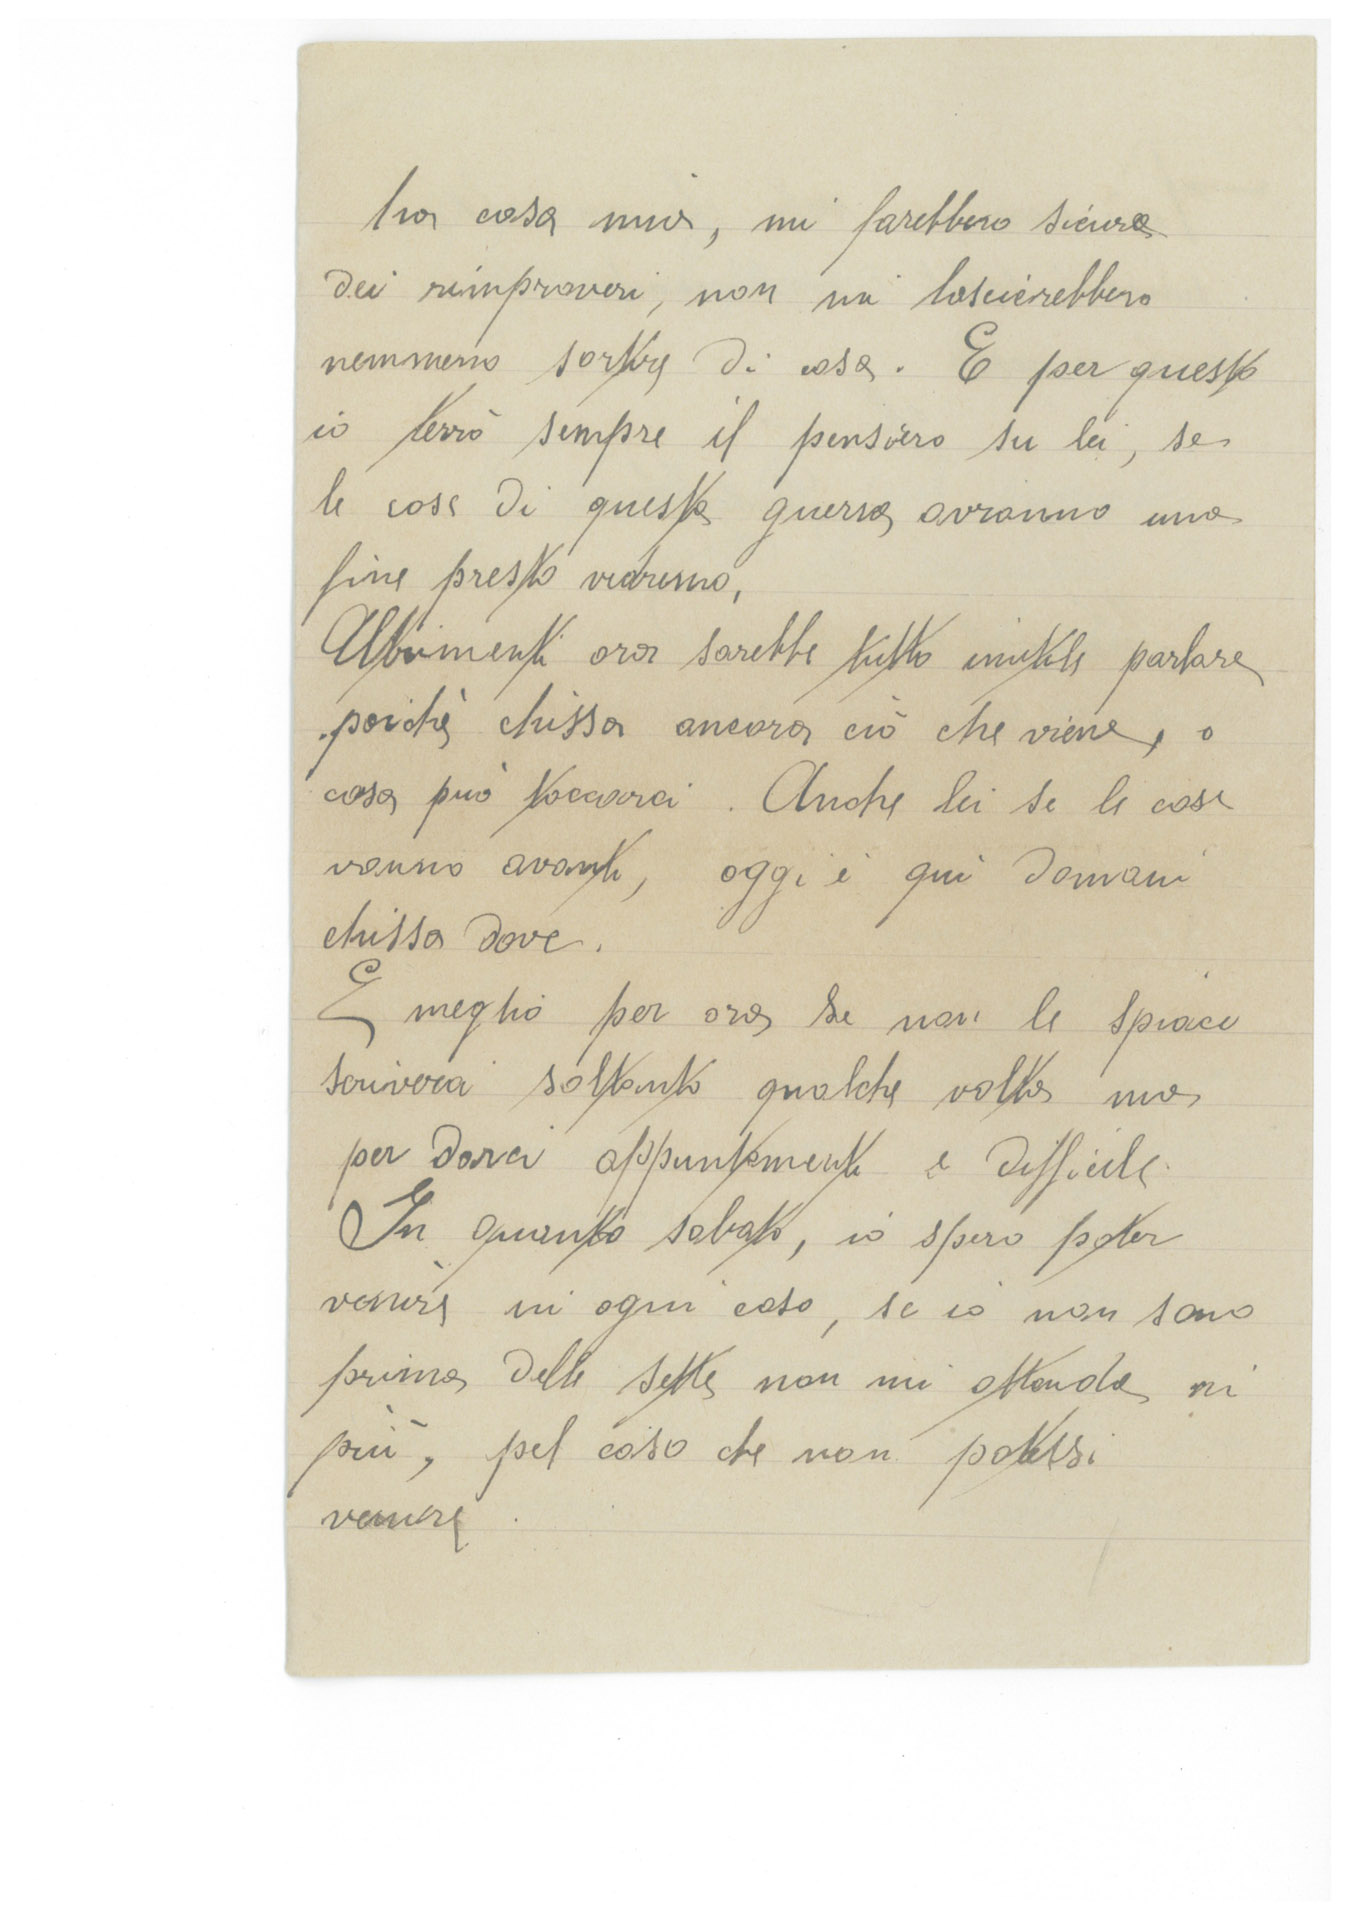 casa mia, mi farebbero sicura
dei rimproveri, non mi lascierebbero
nemmeno sortire di casa. E per questo
io terrò sempre il pensiero su lei, se
le cose di questa guerra avranno una
fine presto vedremo,
Altrimenti ora sarebbe tutto inutile parlare
poichè chissa ancora ciò che viene, o
cosa può toccarci. Anche lei se le cose
vanno avanti, oggi è qui domani
chissa dove.
E meglio per ora se non le spiace
scriverci soltanto qualche volta ma
per darci appuntamenti e difficile.
In quanto sabato, io spero poter
venire in ogni caso, se io non sono
prima delle sette non mi attenda
più, pel caso che non potessi
venire